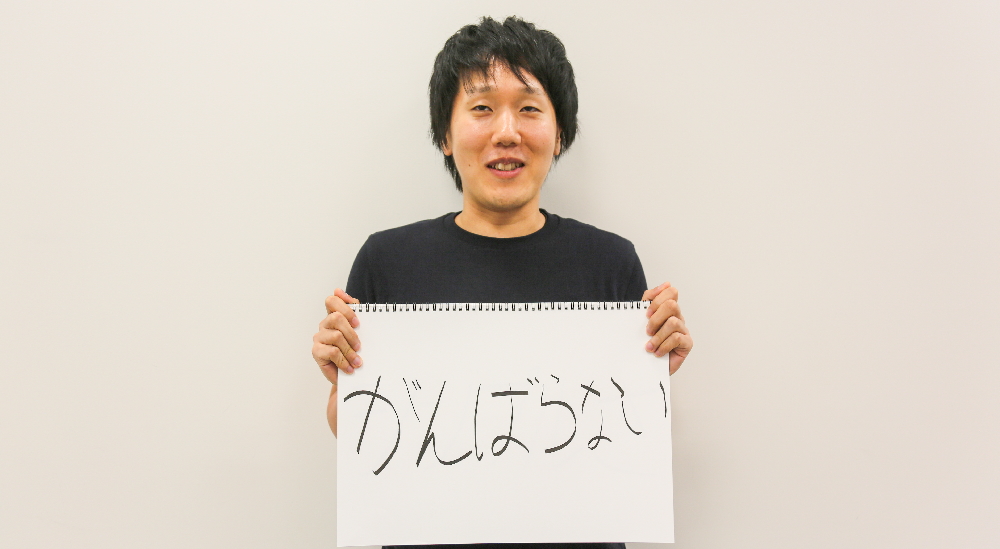 がんばらない